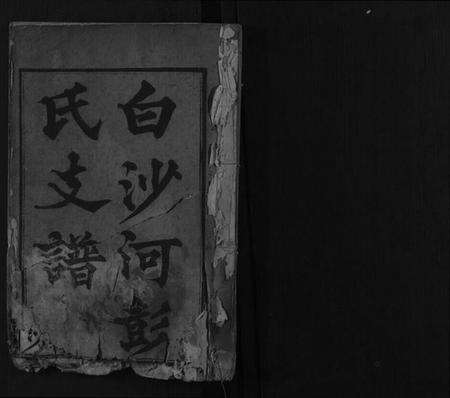 白沙河彭
氏支譜